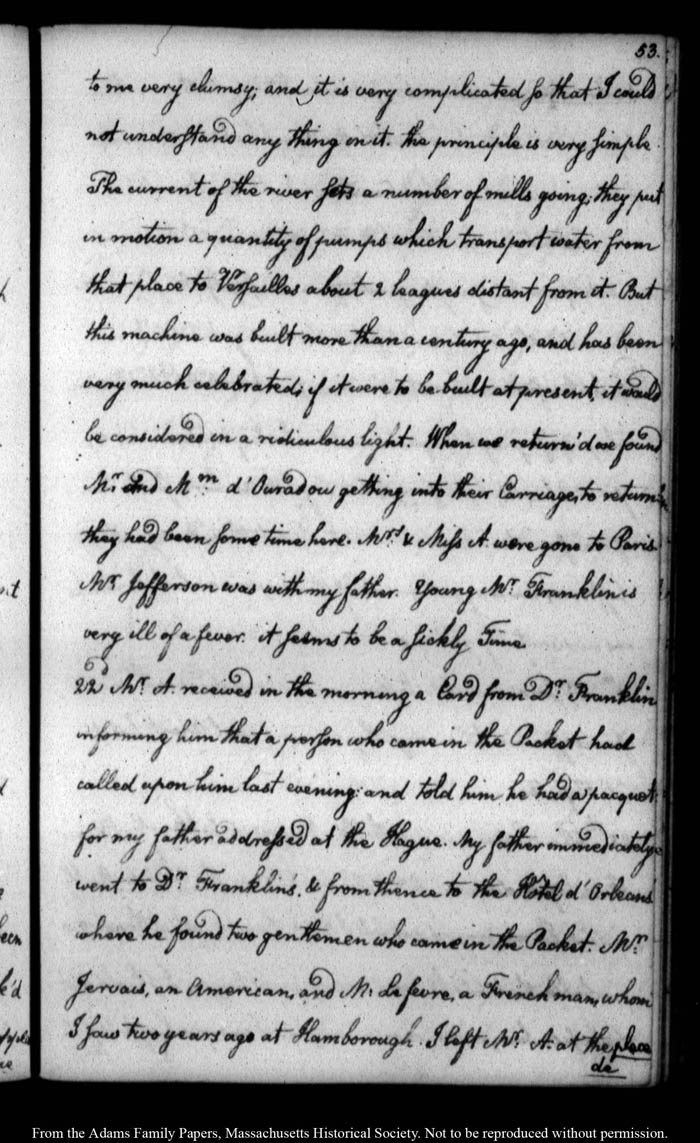 53.
to me very clumsy; and it is very complicated so that I could
not understand any thing on it. the principle is very simple.
The current of the river sets a number of mills going; they put
in motion a quantity of pumps which transport water from
that place to Versailles about 2 leagues distant from it. But
this machine was built more than a century ago, and has been
very much celebrated; if it were to be built at present, it would
be considered in a ridiculous light. When we return'd we found
Mr. and Mm. d'Ouradou getting into their Carriage, to return
they had been some time here. Mrs. & Miss A. were gone to Paris.
Mr. Jefferson was with my father. Young Mr. Franklin is
very ill of a fever. it seems to be a sickly Time
22d Mr. A. received in the morning a Card from Dr. Franklin
informing him that a person who came in the Packet had
called upon him last evening: and told him he had a pacquet
for my father addressed at the Hague. My father immediately
went to Dr. Franklin's, & from thence to the Hôtel d'Orleans
where he found two gentlemen who came in the Packet. Mr.
Jervais, an American, and M. Le fevre, a Frenchman, whom
I saw two years ago at Hamborough. I left Mr. A. at the place
de
een
k'd
From the Adams Family Papers, Massachusetts Historical Society. Not to be reproduced without permission.